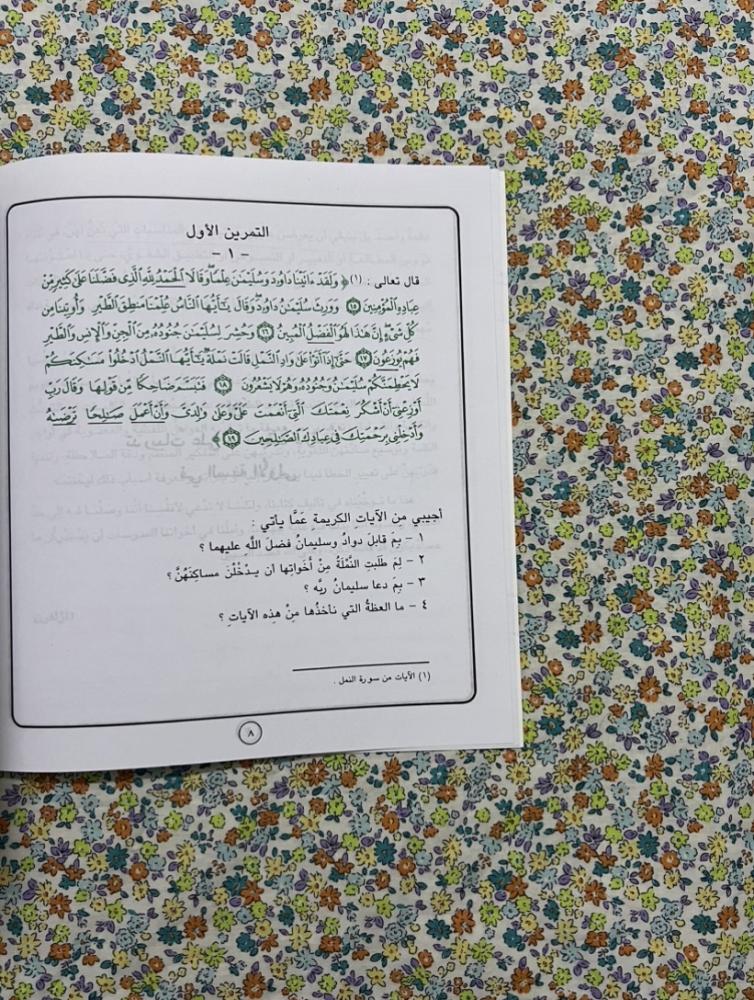 التمرين الأول
– ١ –
قال تعالى : (١) ﴿ وَلَقَدْ ءَاتَيْنَا دَاوُۥدَ وَسُلَيْمَٰنَ عِلْمًا وَقَالَا ٱلْحَمْدُ لِلَّهِ ٱلَّذِى فَضَّلَنَا عَلَىٰ كَثِيرٍ مِّنْ
عِبَادِهِ ٱلْمُؤْمِنِينَ ١٥ وَوَرِثَ سُلَيْمَٰنُ دَاوُۥدَ وَقَالَ يَٰٓأَيُّهَا ٱلنَّاسُ عُلِّمْنَا مَنطِقَ ٱلطَّيْرِ وَأُوتِينَا مِن
كُلِّ شَىْءٍ إِنَّ هَٰذَا لَهُوَ ٱلْفَضْلُ ٱلْمُبِينُ ١٦ وَحُشِرَ لِسُلَيْمَٰنَ جُنُودُهُۥ مِنَ ٱلْجِنِّ وَٱلْإِنسِ وَٱلطَّيْرِ
فَهُمْ يُوزَعُونَ ١٧ حَتَّىٰٓ إِذَآ أَتَوْا عَلَىٰ وَادِ ٱلنَّمْلِ قَالَتْ نَمْلَةٌ يَٰٓأَيُّهَا ٱلنَّمْلُ ٱدْخُلُوا مَسَٰكِنَكُمْ
لَا يَحْطِمَنَّكُمْ سُلَيْمَٰنُ وَجُنُودُهُۥ وَهُمْ لَا يَشْعُرُونَ ١٨ فَتَبَسَّمَ ضَاحِكًا مِّن قَوْلِهَا وَقَالَ رَبِّ
أَوْزِعْنِىٓ أَنْ أَشْكُرَ نِعْمَتَكَ ٱلَّتِىٓ أَنْعَمْتَ عَلَىَّ وَعَلَىٰ وَٰلِدَىَّ وَأَنْ أَعْمَلَ صَٰلِحًا تَرْضَىٰهُ
وَأَدْخِلْنِى بِرَحْمَتِكَ فِى عِبَادِكَ ٱلصَّٰلِحِينَ ١٩ ﴾
أجيبي مِن الآيات الكريمةِ عَمَّا يأتي :
١ – بِمَ قابلَ دوادُ وسليمانُ فضلَ اللَّهِ عليهما ؟
٢ – لِمَ طَلَبَتِ النَّمْلَةُ مِنْ أَخَواتِها أن يدْخُلْنَ مساكِنَهُنَّ ؟
٣ – بِمَ دعا سليمانُ ربَّه ؟
٤ – ما العظةُ التي نأخذُها مِنْ هذِه الآياتِ ؟
(١) الآيات من سورة النمل .
٨